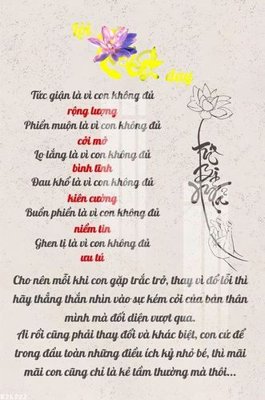 Lời
dạy
Tức giận là vì con không đủ
rộng lượng
Phiền muộn là vì con không đủ
cởi mở
Lo lắng là vì con không đủ
bình tĩnh
Đau khổ là vì con không đủ
kiên cường
Buồn phiền là vì con không đủ
niềm tin
Ghen tị là vì con không đủ
ưu tú
Cho nên mỗi khi con gặp trắc trở, thay vì đổ lỗi thì
hãy thẳng thắn nhìn vào sự kém cỏi của bản thân
mình mà đối diện vượt qua.
Ai rồi cũng phải thay đổi và khác biệt, con cứ để
trong đầu toàn những điều ích kỷ nhỏ bé, thì mãi
mãi con cũng chỉ là kẻ tầm thường mà thôi...